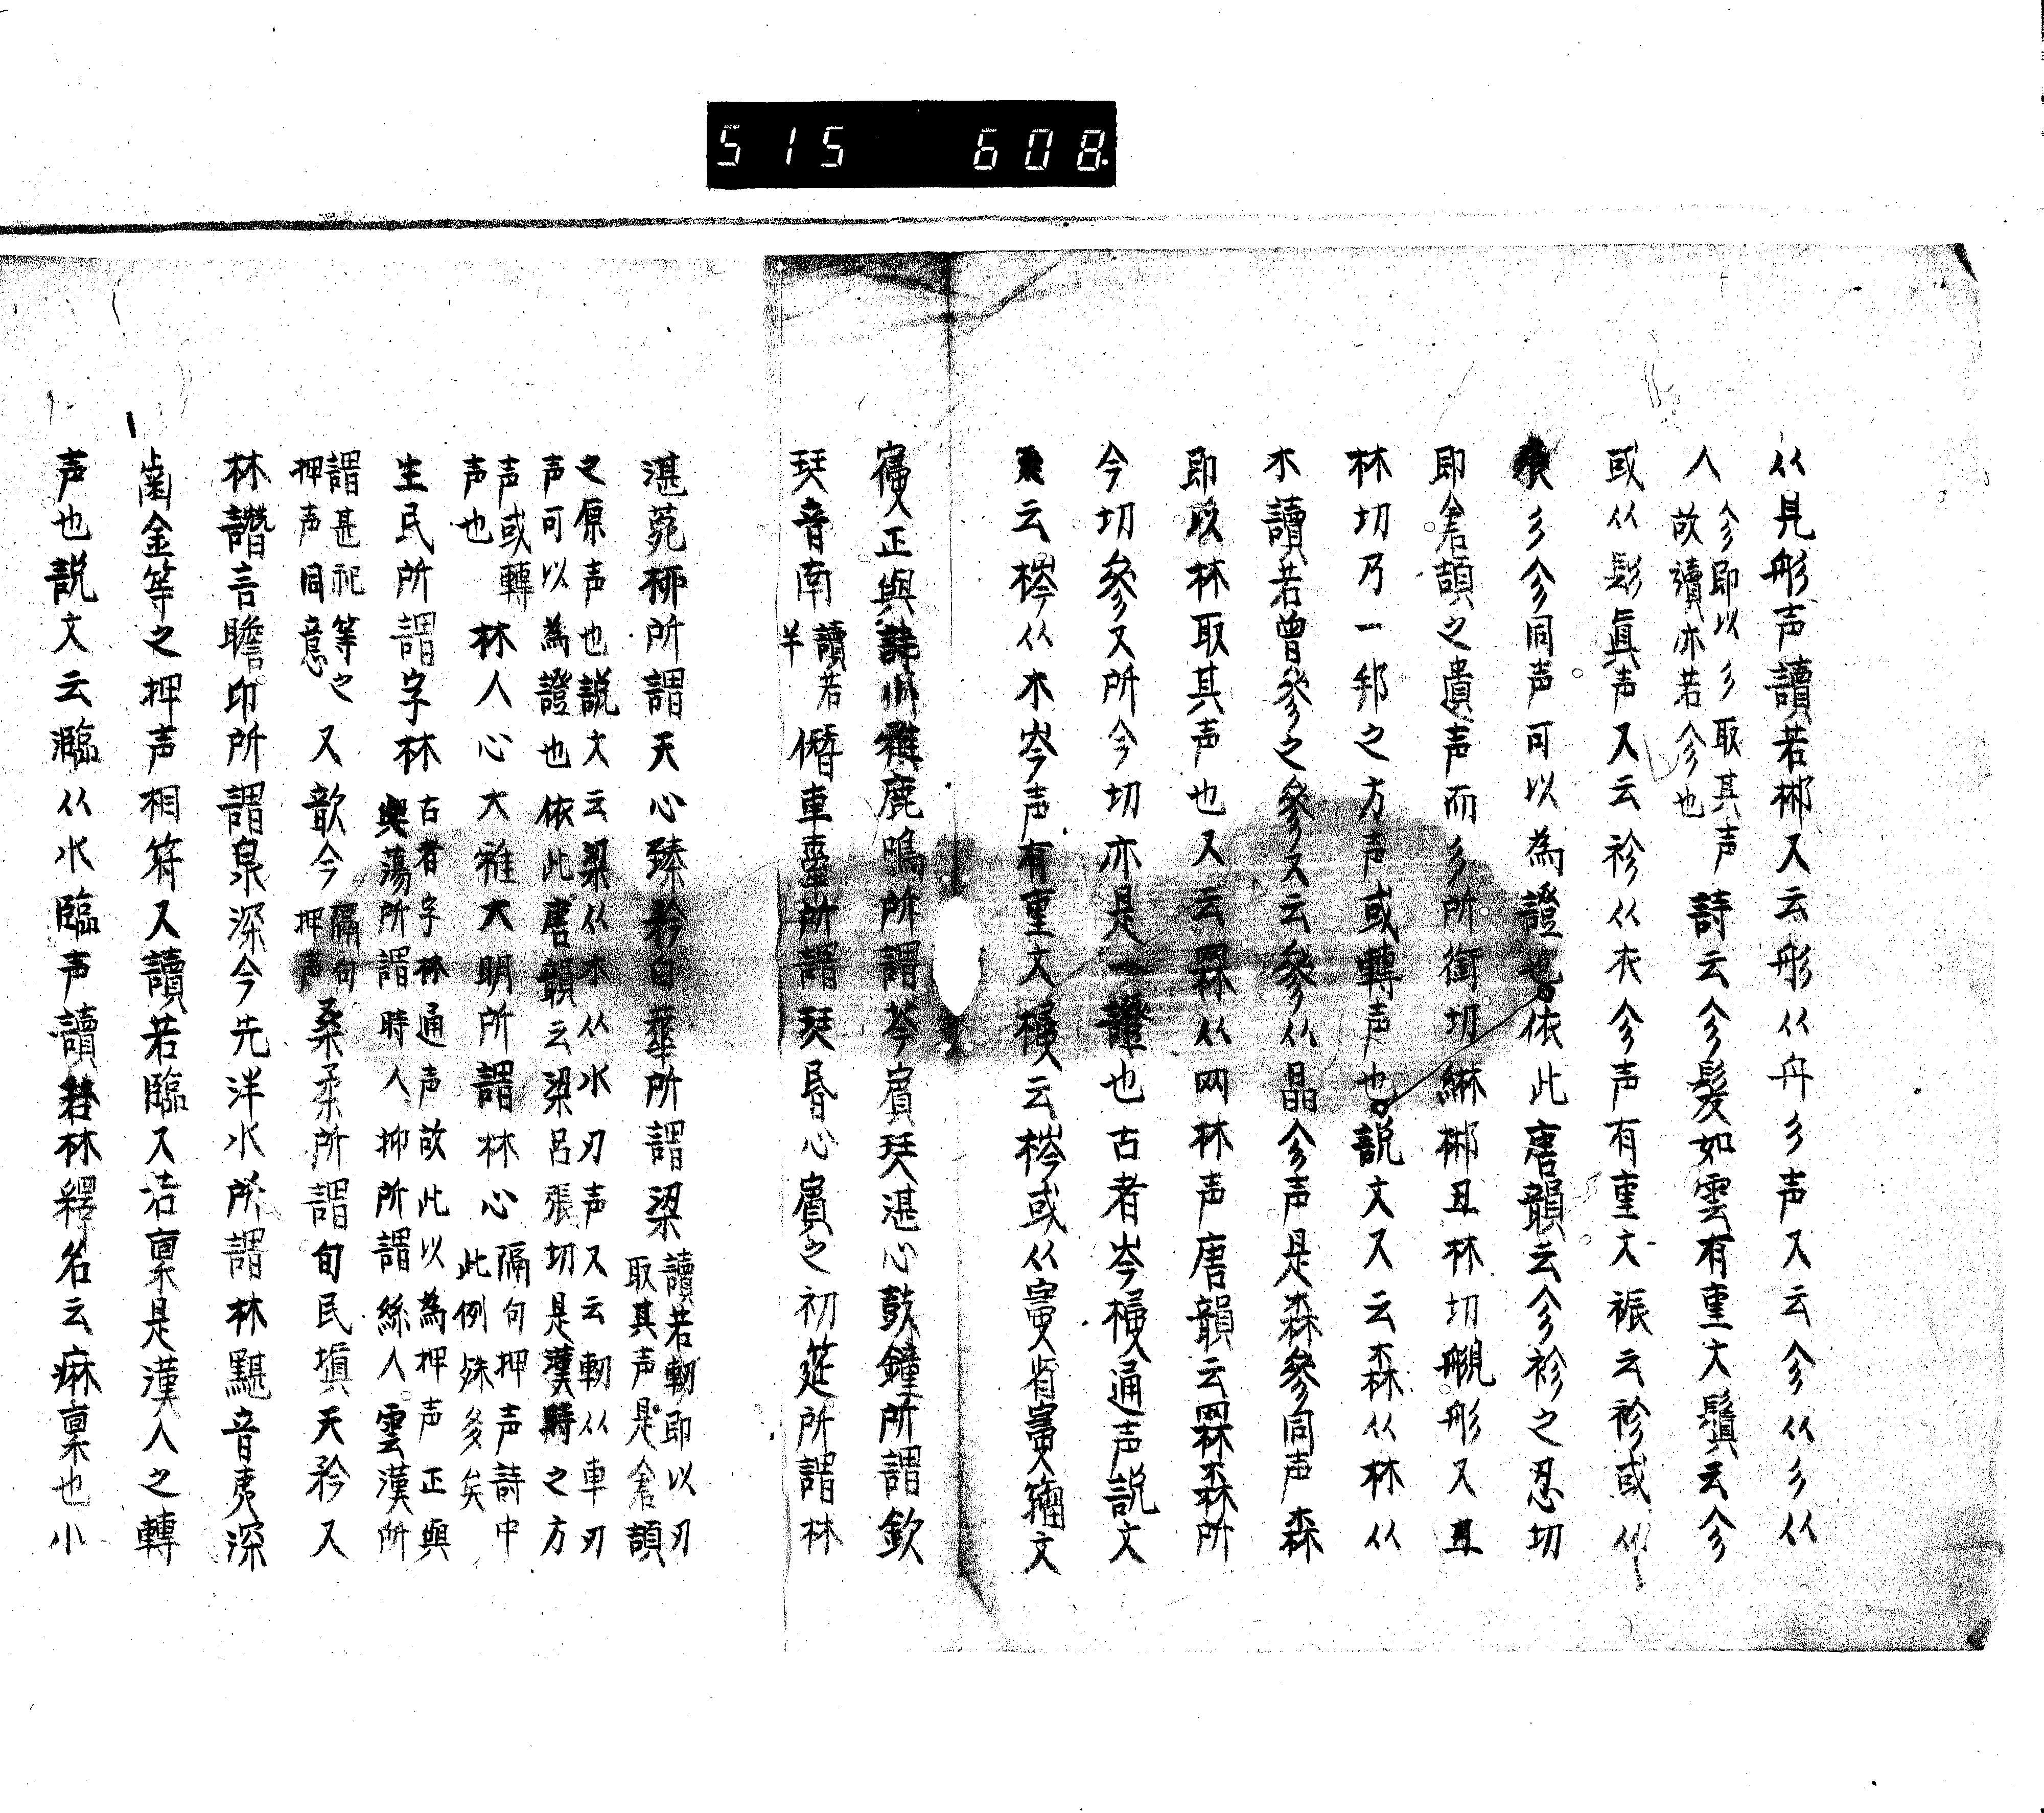 515 608
从見彤声讀若郴又云彤从丹彡声又云㐱从彡从
人㐱即以彡取其声故讀亦若㐱也詩云㐱髮如雲有重文鬒云㐱
或从髟眞声又云袗从衣㐱声有重文裖云袗或从
彡㐱同声可以為證也依此唐韻云㐱袗之忍切
即倉頡之遺声而彡所銜切綝郴丑林切覹彤又丑
林切乃一邦之方声或轉声也説文又云森从林从
木讀若曾參之參又云參从晶㐱声是森參同声森
即以林取其声也又云罧从网林声唐韻云罧森所
今切參又所今切亦是一證也古者岑㯲通声説文
云梣从木岑声有重文㯲云梣或从𡪢省𡪢籀文
𡪢正與小雅鹿鳴所謂芩賓琴湛心鼓鐘所謂欽
琴音南讀若羊僭車舝所謂琴昏心賓之初筵所謂林
湛菀柳所謂天心臻矜白華所謂梁讀若軔即以刃取其声是倉頡
之原声也説文云梁从木从水刃声又云軔从車刃声可以為證也依此唐韻云梁呂張切是漢時之方
声或轉声也林人心大雅大明所謂林心隔句押声詩中此例殊多矣
生民所謂字林古者字林通声故此以為押声正與與蕩所謂時人抑所謂絲人雲漢所
謂甚祀等之押声同意又歆今隔句押声桑柔所謂旬民塡天矜又
林譖言瞻卬所謂泉深今先泮水所謂林黮音賓深
歯金等之押声相符又讀若臨又活稟是漢人之轉
声也説文云瀶从水臨声讀若林釋名云痳稟也小